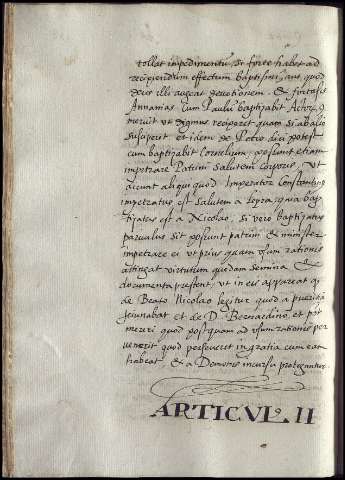 tollat impedimentũ, si forte habet ad
recipiendum effectum baptismi, aut quod
Deus illi augeat devotionem, & fortasse
Annanias cum Paulũ baptizabit Actor. 9
meruit ut dignius reciperet quam si ab alio
susciperet, et idem de Petro dici potest
cum baptizabit Cornelium, possunt etiam
impetrare Patrini salutem corporis, ut
aiunt aliqui quod Imperator Constantinus
impetratus est salutem a lepra, quia bap
tizatus est a Nicolao, si vero baptizatus
parvulus sit possunt patrini & minister
impetrare ei ut prius quam usum rationis
attingat virtutum quedam semina &
documenta prestent, ut in eis appareat qđ
de Beato Nicolao legitur quod a pueritia
jeiunabat et de D. Bernardino et pnt
mereri quod postquam ad usum rationis per
venerit quod perseveret in gratia cum eam
habeat, & a Demonis incursu protegantur.
ARTICVL. II